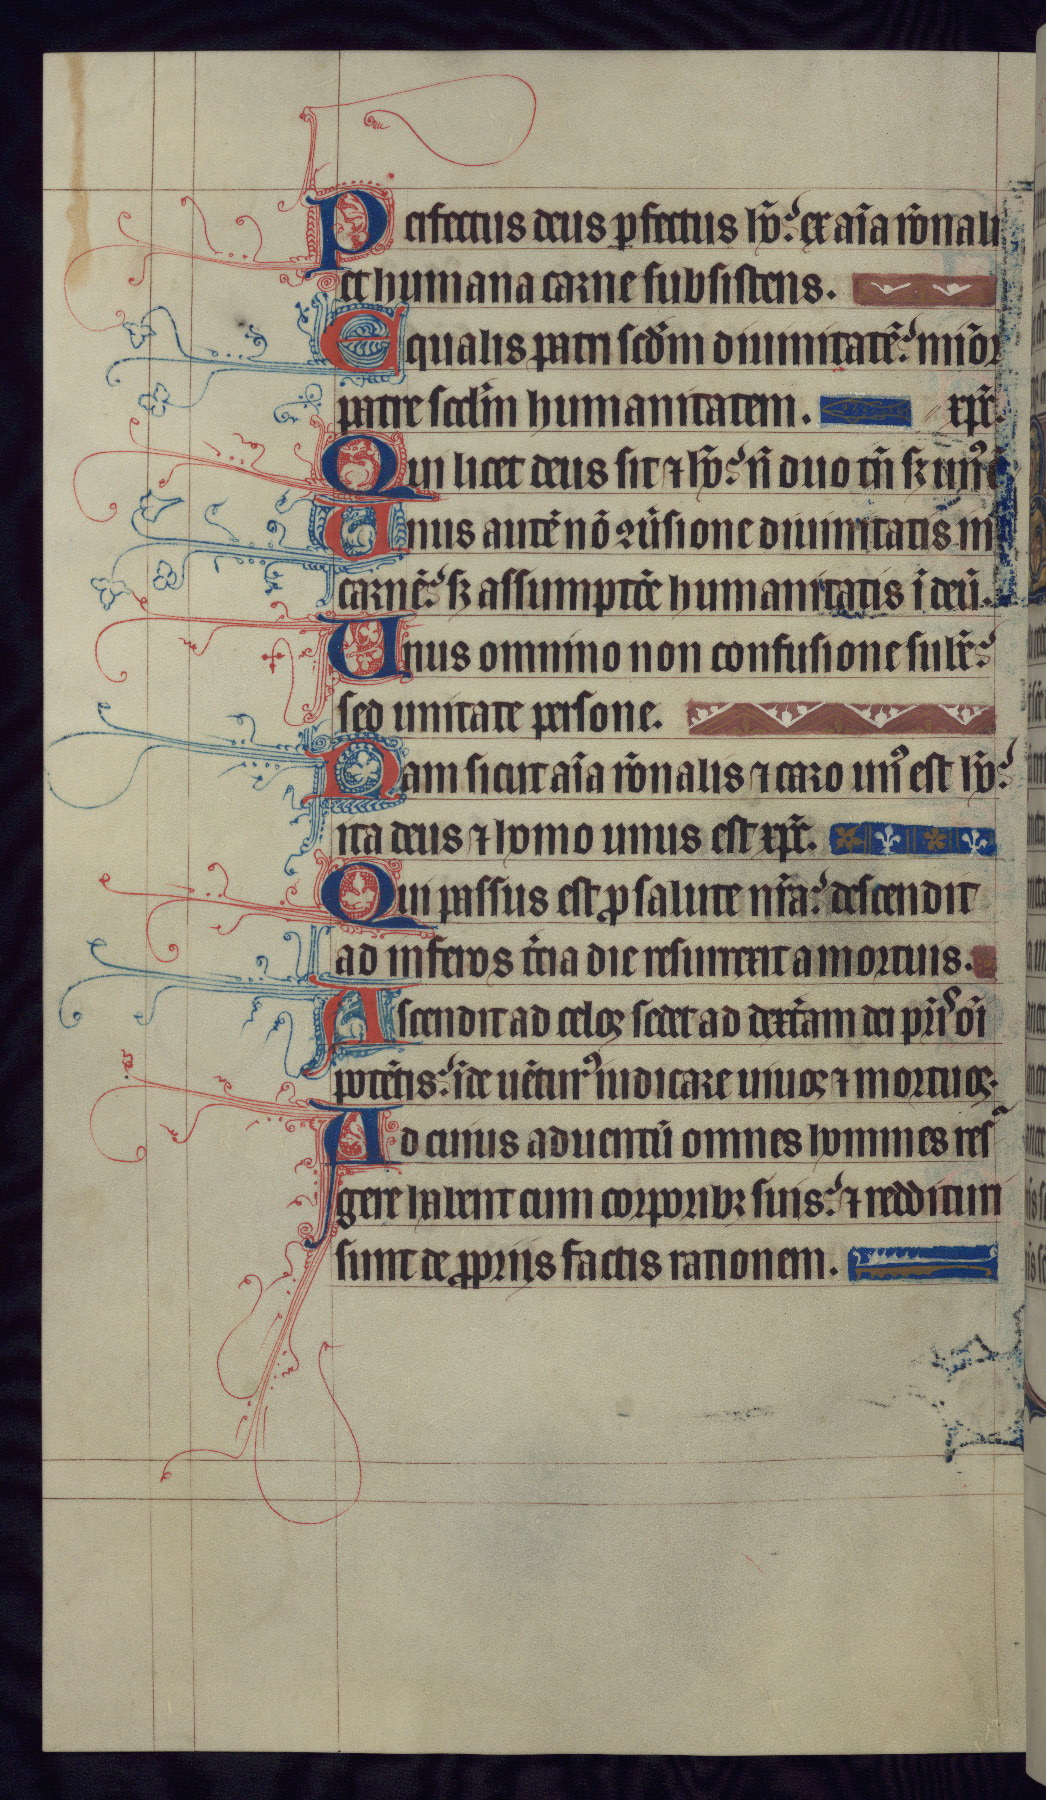 Perfectus deus pfectus hō: ex aīa rōnali
et humana carne subsistens.
Equalis patri scd̄m diuinitatē: minōr
patre scd̄m humanitatem. xpc̄
Qui licet deus sit ⁊ hō: n̄ duo tn̄ sꝫ unꝰ ē
Unus autē nō ꝯūsione diuinitatis in
carnē: sꝫ assumptōe humanitatis ī deū.
Unus omnino non confusione sube:
sed unitate persone.
Nam sicut aīa rōnalis ⁊ caro unꝰ est hō:
ita deus ⁊ homo unus est xpc̄.
Qui passus est ꝓ salute nr̄a: descendit
ad inferos t̄cia die resurrexit a mortuis.
Ascendit ad celos sedet ad dext̄am dei pr̄is oī
potētis: īde uētur̉ iudicare uiuos ⁊ mortuos.
Ad cuius aduentū omnes homines resr̉
gere habent cum corporibꝫ suis: ⁊ reddituri
sunt de ꝓpriis factis rationem.